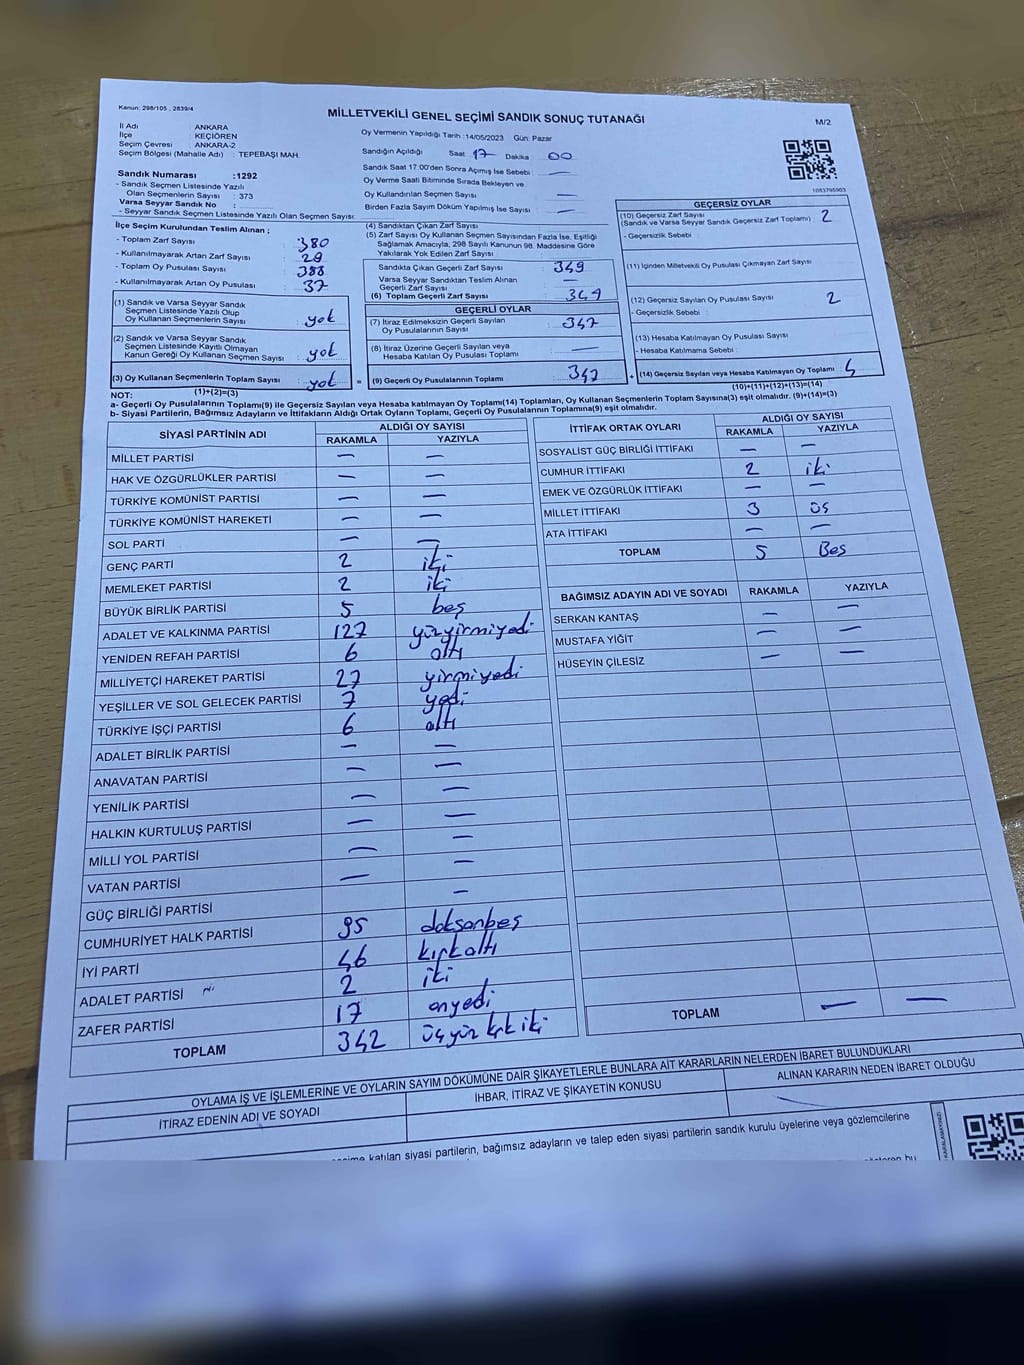 Kanun: 298/105 , 2839/4
MİLLETVEKİLİ GENEL SEÇİMİ SANDIK SONUÇ TUTANAĞI
M/2
İl Adı : ANKARA
İlçe : KEÇİÖREN
Seçim Çevresi : ANKARA-2
Seçim Bölgesi (Mahalle Adı) : TEPEBAŞI MAH.
Oy Vermenin Yapıldığı Tarih :14/05/2023 Gün: Pazar
Sandığın Açıldığı Saat 17 Dakika 00
Sandık Saat 17:00'den Sonra Açılmış İse Sebebi : —
Oy Verme Saati Bitiminde Sırada Bekleyen ve
Oy Kullandırılan Seçmen Sayısı : —
Birden Fazla Sayım Döküm Yapılmış İse Sayısı : —
1083795903
Sandık Numarası :1292
- Sandık Seçmen Listesinde Yazılı
Olan Seçmenlerin Sayısı : 373
Varsa Seyyar Sandık No :
- Seyyar Sandık Seçmen Listesinde Yazılı Olan Seçmen Sayısı:
İlçe Seçim Kurulundan Teslim Alınan ;
- Toplam Zarf Sayısı : 380
- Kullanılmayarak Artan Zarf Sayısı : 29
- Toplam Oy Pusulası Sayısı : 388
- Kullanılmayarak Artan Oy Pusulası : 37
(1) Sandık ve Varsa Seyyar Sandık
Seçmen Listesinde Yazılı Olup
Oy Kullanan Seçmenlerin Sayısı : yok
(2) Sandık ve Varsa Seyyar Sandık
Seçmen Listesinde Kayıtlı Olmayan
Kanun Gereği Oy Kullanan Seçmen Sayısı : yok
(3) Oy Kullanan Seçmenlerin Toplam Sayısı : yok
(1)+(2)=(3)
(4) Sandıktan Çıkan Zarf Sayısı :
(5) Zarf Sayısı Oy Kullanan Seçmen Sayısından Fazla İse, Eşitliği
Sağlamak Amacıyla, 298 Sayılı Kanunun 98. Maddesine Göre
Yakılarak Yok Edilen Zarf Sayısı :
Sandıkta Çıkan Geçerli Zarf Sayısı : 349
Varsa Seyyar Sandıktan Teslim Alınan
Geçerli Zarf Sayısı : —
(6) Toplam Geçerli Zarf Sayısı : 349
GEÇERLİ OYLAR
(7) İtiraz Edilmeksizin Geçerli Sayılan
Oy Pusulalarının Sayısı : 347
(8) İtiraz Üzerine Geçerli Sayılan veya
Hesaba Katılan Oy Pusulası Toplamı : —
= (9) Geçerli Oy Pusulalarının Toplamı : 347
GEÇERSİZ OYLAR
(10) Geçersiz Zarf Sayısı
(Sandık ve Varsa Seyyar Sandık Geçersiz Zarf Toplamı) : 2
- Geçersizlik Sebebi :
(11) İçinden Milletvekili Oy Pusulası Çıkmayan Zarf Sayısı
(12) Geçersiz Sayılan Oy Pusulası Sayısı : 2
- Geçersizlik Sebebi :
(13) Hesaba Katılmayan Oy Pusulası Sayısı
- Hesaba Katılmama Sebebi :
+ (14) Geçersiz Sayılan veya Hesaba Katılmayan Oy Toplamı : 4
(10)+(11)+(12)+(13)=(14)
NOT:
a- Geçerli Oy Pusulalarının Toplamı(9) ile Geçersiz Sayılan veya Hesaba katılmayan Oy Toplamı(14) Toplamları, Oy Kullanan Seçmenlerin Toplam Sayısına(3) eşit olmalıdır. (9)+(14)=(3)
b- Siyasi Partilerin, Bağımsız Adayların ve İttifakların Aldığı Ortak Oyların Toplamı, Geçerli Oy Pusulalarının Toplamına(9) eşit olmalıdır.
SİYASİ PARTİNİN ADI ALDIĞI OY SAYISI
RAKAMLA YAZIYLA
MİLLET PARTİSİ — —
HAK VE ÖZGÜRLÜKLER PARTİSİ — —
TÜRKİYE KOMÜNİST PARTİSİ — —
TÜRKİYE KOMÜNİST HAREKETİ — —
SOL PARTİ — —
GENÇ PARTİ 2 iki
MEMLEKET PARTİSİ 2 iki
BÜYÜK BİRLİK PARTİSİ 5 beş
ADALET VE KALKINMA PARTİSİ 127 yüzyirmiyedi
YENİDEN REFAH PARTİSİ 6 altı
MİLLİYETÇİ HAREKET PARTİSİ 27 yirmiyedi
YEŞİLLER VE SOL GELECEK PARTİSİ 7 yedi
TÜRKİYE İŞÇİ PARTİSİ 6 altı
ADALET BİRLİK PARTİSİ — —
ANAVATAN PARTİSİ — —
YENİLİK PARTİSİ — —
HALKIN KURTULUŞ PARTİSİ — —
MİLLİ YOL PARTİSİ — —
VATAN PARTİSİ — —
GÜÇ BİRLİĞİ PARTİSİ —
CUMHURİYET HALK PARTİSİ 95 doksanbeş
İYİ PARTİ 46 kırkaltı
ADALET PARTİSİ 2 iki
ZAFER PARTİSİ 17 onyedi
TOPLAM 342 üçyüz kırk iki
İTTİFAK ORTAK OYLARI ALDIĞI OY SAYISI
RAKAMLA YAZIYLA
SOSYALİST GÜÇ BİRLİĞİ İTTİFAKI — —
CUMHUR İTTİFAKI 2 iki
EMEK VE ÖZGÜRLÜK İTTİFAKI — —
MİLLET İTTİFAKI 3 üç
ATA İTTİFAKI — —
TOPLAM 5 Beş
BAĞIMSIZ ADAYIN ADI VE SOYADI RAKAMLA YAZIYLA
SERKAN KANTAŞ — —
MUSTAFA YİĞİT — —
HÜSEYİN ÇİLESİZ — —
TOPLAM — —
OYLAMA İŞ VE İŞLEMLERİNE VE OYLARIN SAYIM DÖKÜMÜNE DAİR ŞİKAYETLERLE BUNLARA AİT KARARLARIN NELERDEN İBARET BULUNDUKLARI
İTİRAZ EDENİN ADI VE SOYADI İHBAR, İTİRAZ VE ŞİKAYETİN KONUSU ALINAN KARARIN NEDEN İBARET OLDUĞU
katılan siyasi partilerin, bağımsız adayların ve talep eden siyasi partilerin sandık kurulu üyelerine veya gözlemcilerine